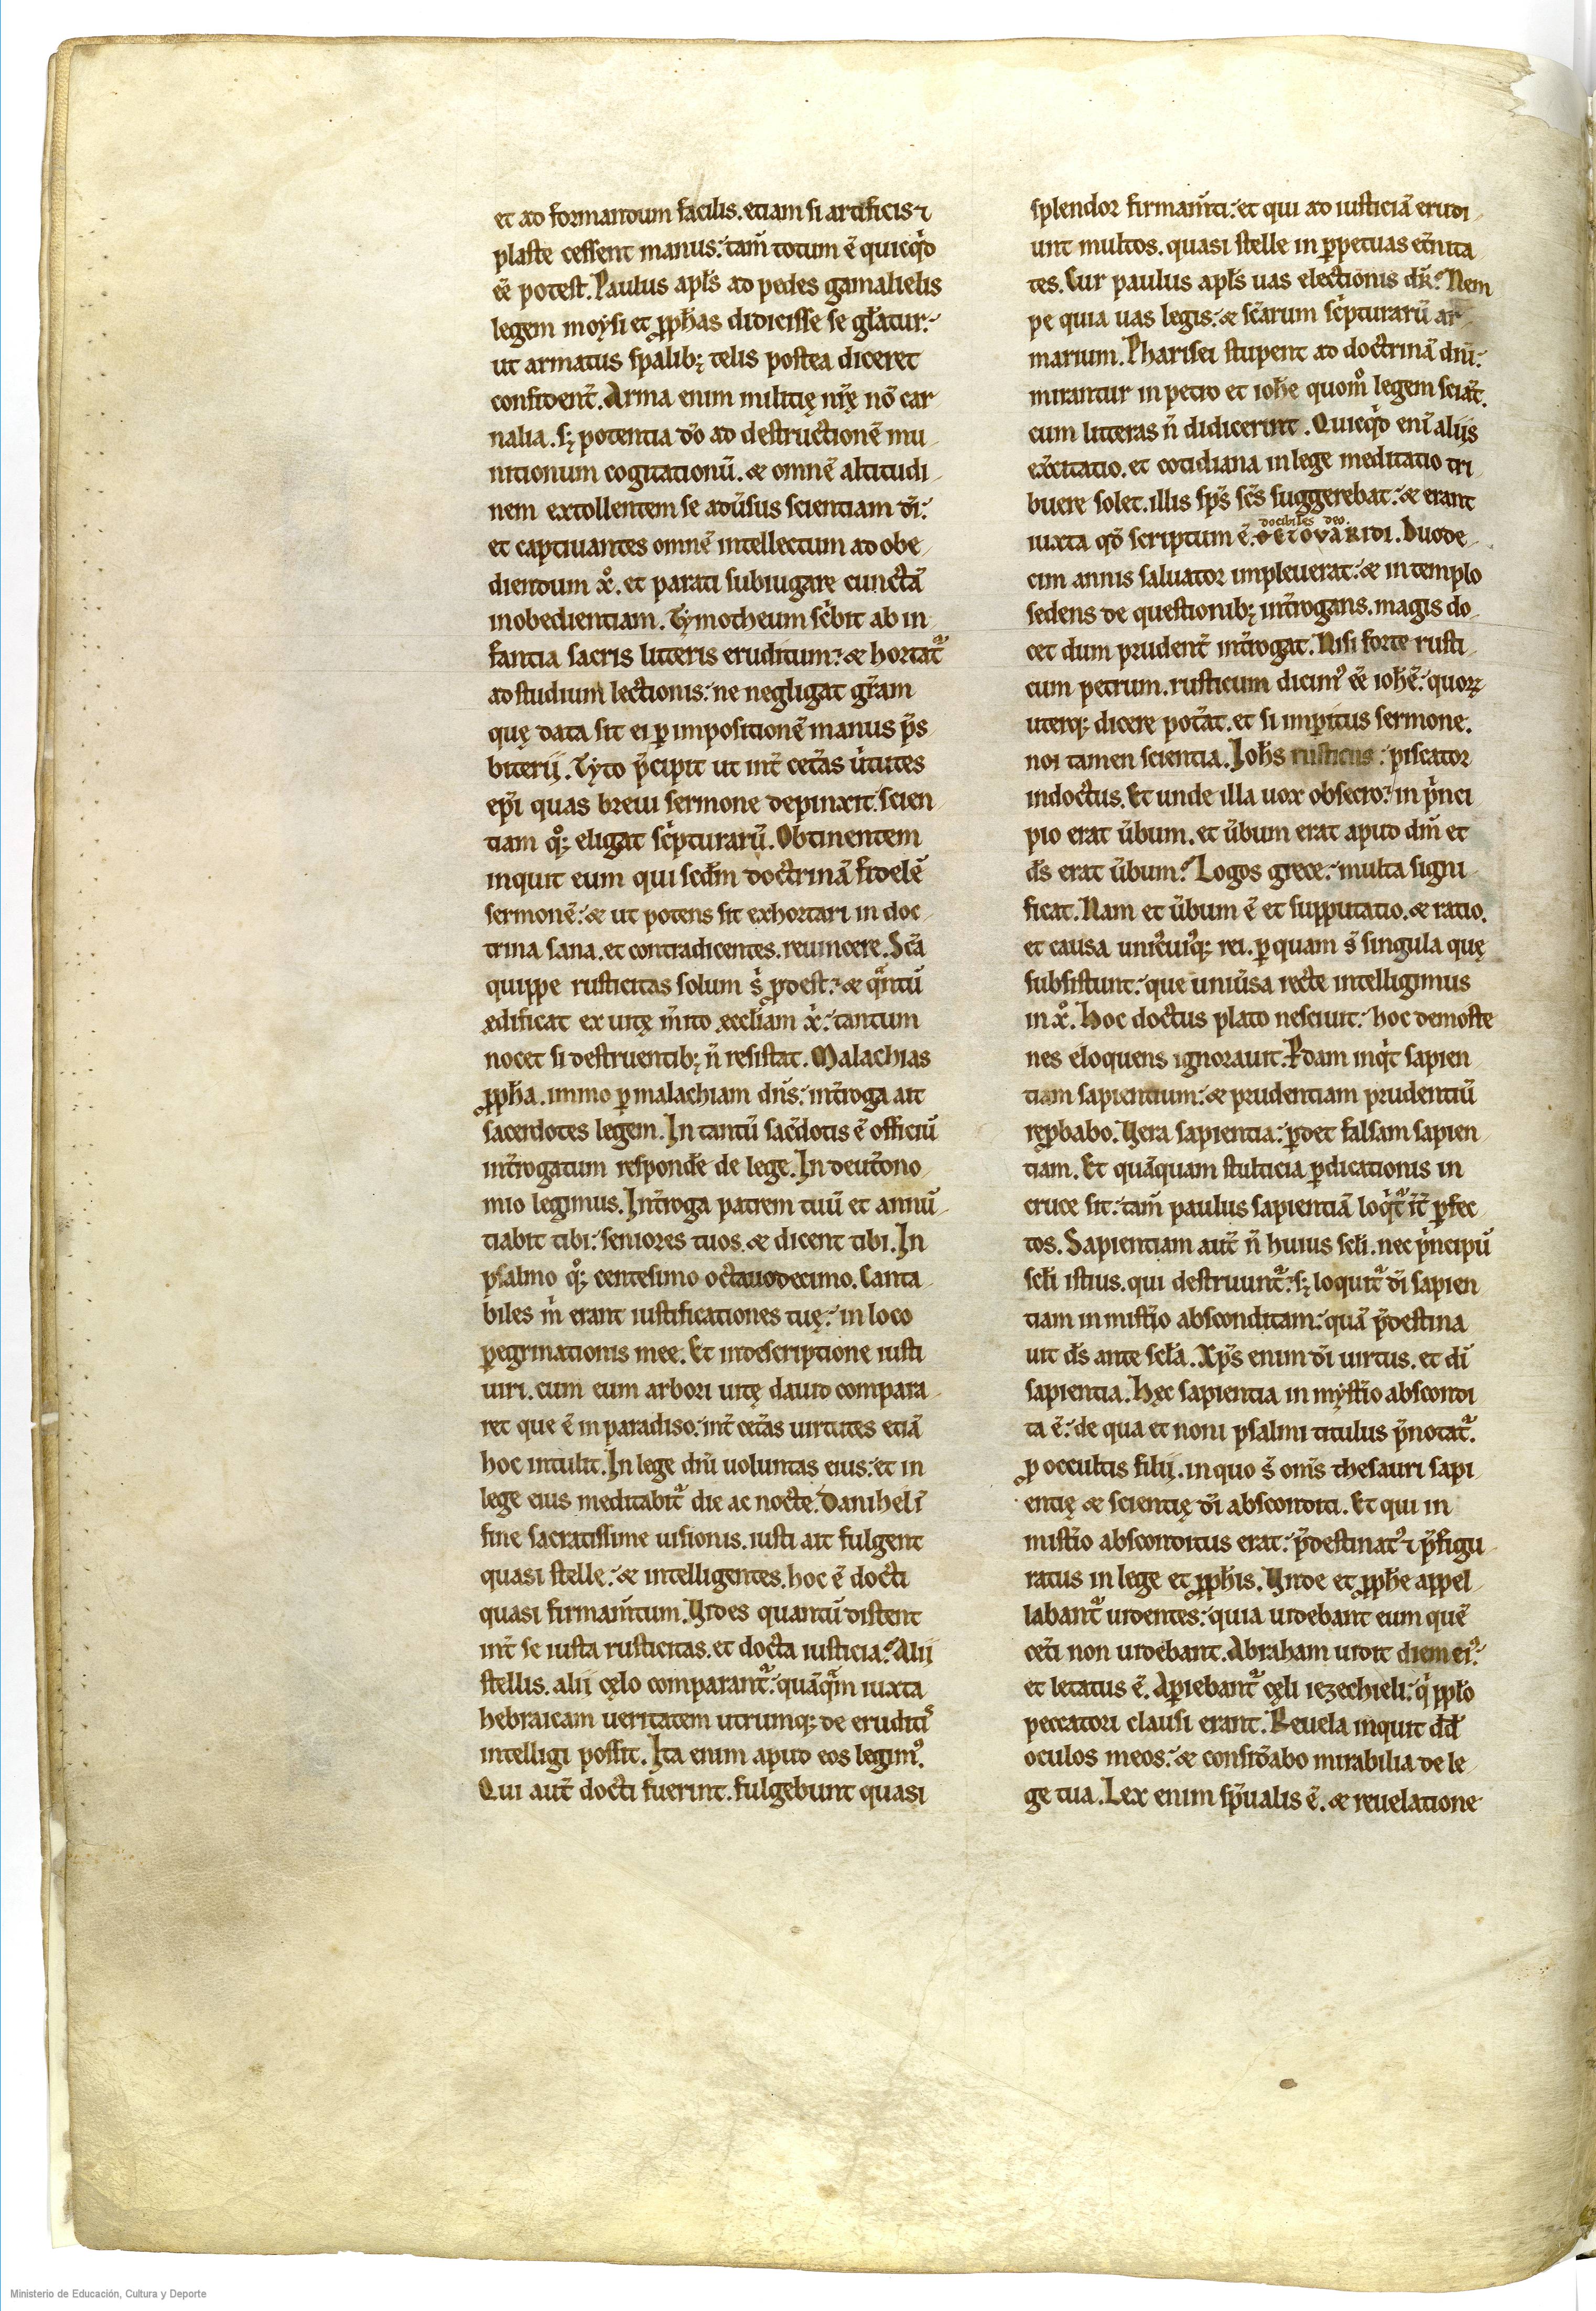 et ad formandum facilis. etiam si artificis ⁊
plaste cessent manus: tam̄ totum ē quicq̇d
eē potest. Paulus apl̄s ad pedes gamalielis
legem moẏsi et ꝓph̄as didicisse se gl̄atur:
ut armatus sp̄alib; telis postea diceret
confident̄. Arma enim militię nr̄ę nō car
nalia. sꝫ potentia dō ad destructionē mu-
nitionum cogitationū. & omnē altitudi-
nem extollentem se adūsus scientiam dī:
et captiuantes omnē intellectum ad obe-
diendum xͦ. et parati subiugare cunctā
inobedientiam. Tẏmotheum sc̓bit ab in-
fantia sacris litteris eruditum: & hortat᷑
ad studium lectionis: ne negligat gr̄am
quę data sit ei ꝑ impositionē manus p̄s
biterij. Tẏto p̄cipit ut int̄ cet̄as ūtutes
ep̄i quas breui sermone depinxit: scien
tiam qͦꝫ eligat sc̓pturarū. Obtinentem
inquit eum qui scd̄m doctrinā fidelē
sermonē: & ut potens sit exhortari in doc-
trina sana. et contradicentes. reuincere. Sc̄a
quippe rusticitas solum s̓ ꝓdest: & qᷓntū
ędificat ex uitę m̄ito ęccl̄iam x̓: tantum
nocet si destruentib; n̄ resistat. Malachias
ꝓph̄a. immo ꝑ malachiam dn̄s: int̄roga ait
sacerdotes legem. In tantū sac̄dotis ē officiū
int̄rogatum respondē de lege. In deut̄ono-
mio legimus. Int̄roga patrem tuū et annū-
tiabit tibi: seniores tuos. & dicent tibi. In
psalmo qͦꝫ centesimo octauodecimo. Canta-
biles m̓ erant iustificationes tuę: in loco
ꝑegrinationis mee. Et in descriptione iusti
uiri. cum eum arbori uitę dauid compara-
ret que ē in paradiso: int̄ cet̄as uirtutes etiā
hoc intulit. In lege dn̄i uoluntas eius: et in
lege eius meditabit᷑ die ac nocte. Danihel ī
fine sacratissime uisionis. iusti ait fulgent
quasi stelle: & intelligentes. hoc ē docti
quasi firmam̄tum. Vides quantū distent
int̄ se iusta rusticitas. et docta iusticia? Alii
stellis. alii cęlo comparant᷑: quāqᷓm iuxta
hebraicam ueritatem utrumqꝫ de eruditis
intelligi possit. Ita enim apud eos legimꝰ.
Qui aut̄ docti fuerint. fulgebunt quasi
splendor firmam̄ti: et qui ad iusticiā erudi-
unt multos. quasi stelle in ꝑpetuas et̄nita
tes. Cur paulus apl̄s uas electiōnis dr̄? Nem
pe quia uas legis: & sc̄arum sc̓pturarū ar-
marium. Pharisei stupent ad doctrinā dn̄i:
mirantur in petro et ioh̄e quom̊ legem sciāt.
cum litteras n̄ didicerint. Quicq̇d enī aliis
ex̄citatio. et cotidiana in lege meditatio tri-
buere solet. illis sp̄s sc̄s suggerebat: & erant
docibiles deo.
iuxta qd̄ scriptum ē. ΘΕΙΟΥΔΑΚΙΔΙ. Duode-
cim annis saluator impleuerat: & in templo
sedens de questionib; int̄rogans. magis do-
cet dum prudent̄ int̄rogat. Nisi forte rusti-
cum petrum. rusticum dicimꝰ eē ioh̄ē: quoꝝ
uterqꝫ dicere pot̄at. et si imꝑitus sermone.
noi tamen scientia. Ioh̄s rusticus: piscator
indoctus. Et unde illa uox obsecro: in p̓nci
pio erat ūbum. et ūbum erat apud dm̄ et
ds̄ erat ūbum? Logos grece: multa signi-
ficat. Nam et ūbum ē et supputatio. & ratio.
et causa unic̓uiꝰqꝫ rei. ꝑ quam s̄ singula quę
subsistunt: que uniūsa recte intelligimus
in xͦ. Hoc doctus plato nesciuit: hoc demoste
nes eloquens ignorauit. Ꝑdam inq̇t sapien
tiam sapientium: & prudentiam prudentiū
reꝓbabo. Vera sapientia: ꝑdet falsam sapien
tiam. Et quāquam stulticia p̄dicationis in
cruce sit: tam̄ paulus sapientiā loq̇t᷑ int̄ ꝑfec-
tos. Sapientiam aut̄ n̄ huius scl̄i. nec p̓ncipū
scl̄i istius. qui destruunt᷑: sꝫ loquit᷑ dī sapien
tiam in mist̄io absconditam: quā p̄destina
uit ds̄ ante scl̄a. Xp̄s enim dī uirtus. et dī
sapientia. Hęc sapientia in mẏst̄io abscondi
ta ē: de qua et noni psalmi titulus p̄notat᷑.
ꝓ occultis filij. in quo s̄ oms̄ thesauri sapi
entię & scientię dī absconditi. Et qui in
mist̄io absconditus erat: p̄destinatꝰ ⁊ p̄figu-
ratus in lege et ꝓph̄is. Vnde et ꝓph̄e appel-
labant᷑ uidentes: quia uidebant eum quē
cet̄i non uidebant. Abraham uidit diem eiꝰ:
et letatus ē. Aꝑiebant᷑ cęli iezechieli: q̓ ppl̄o
peccatori clausi erant. Reuela inquit dd̄
oculos meos: & considābo mirabilia de le-
ge tua. Lex enim sp̄ualis ē. & reuelatione
Ministerio de Educación, Cultura y Deporte